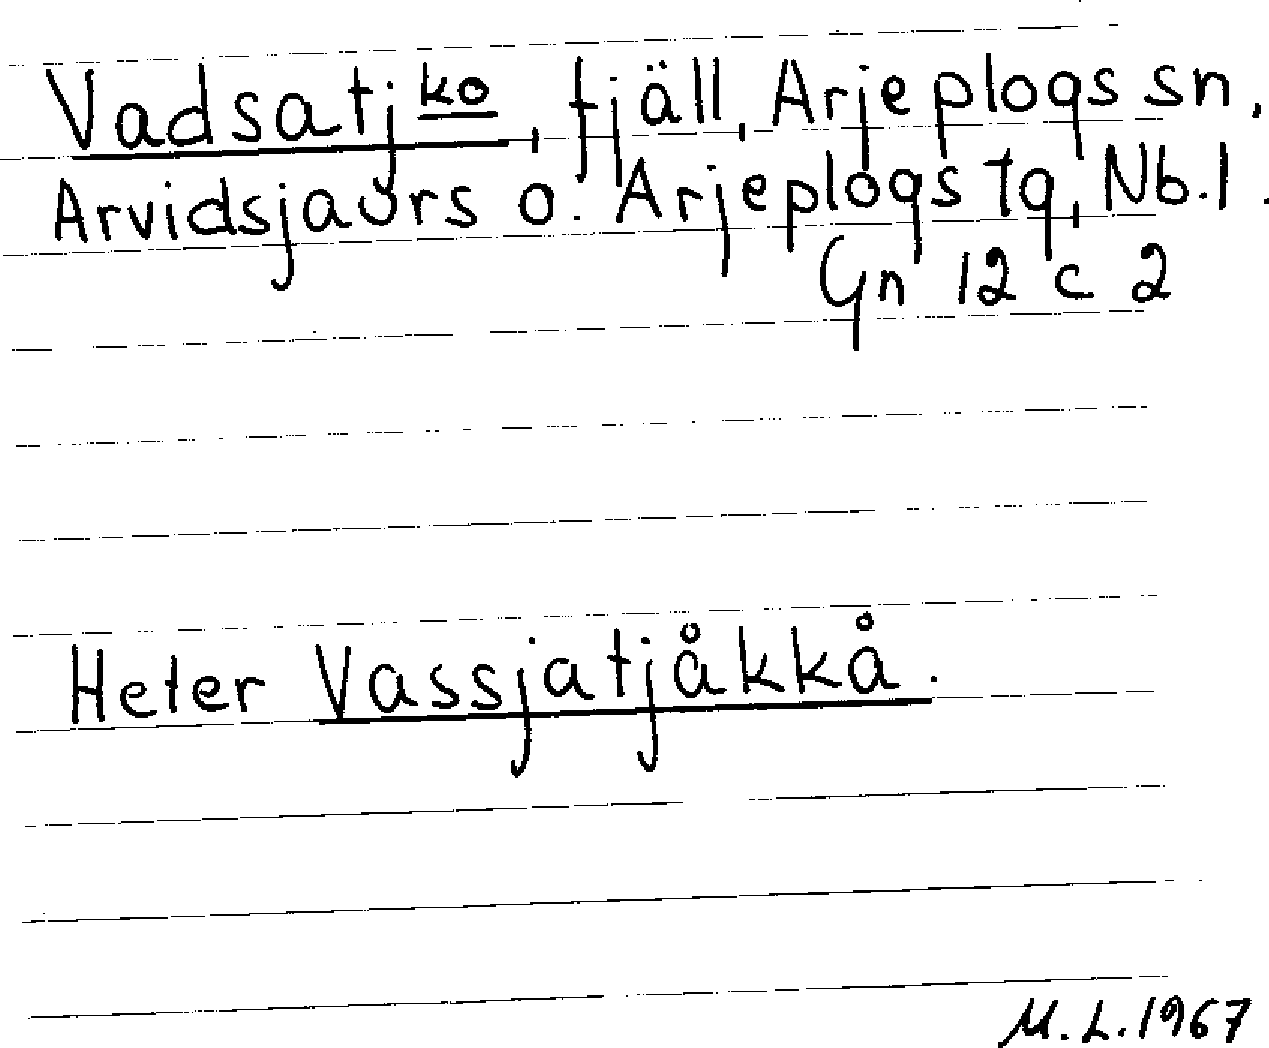 Vadsatjko, fjäll, Arjeplogs sn,
Arvidsjaurs o. Arjeplogs tg, Nb.l.
Gn 12 c 2
Heter Vassjatjåkkå.
M.L. 1967